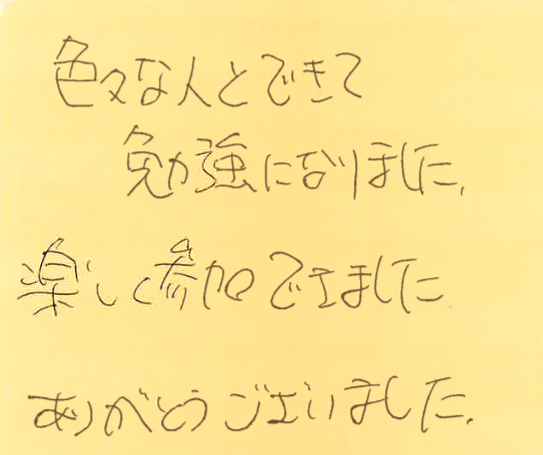 色々な人とできて
勉強になりました。
楽しく参加できました
ありがとうございました。